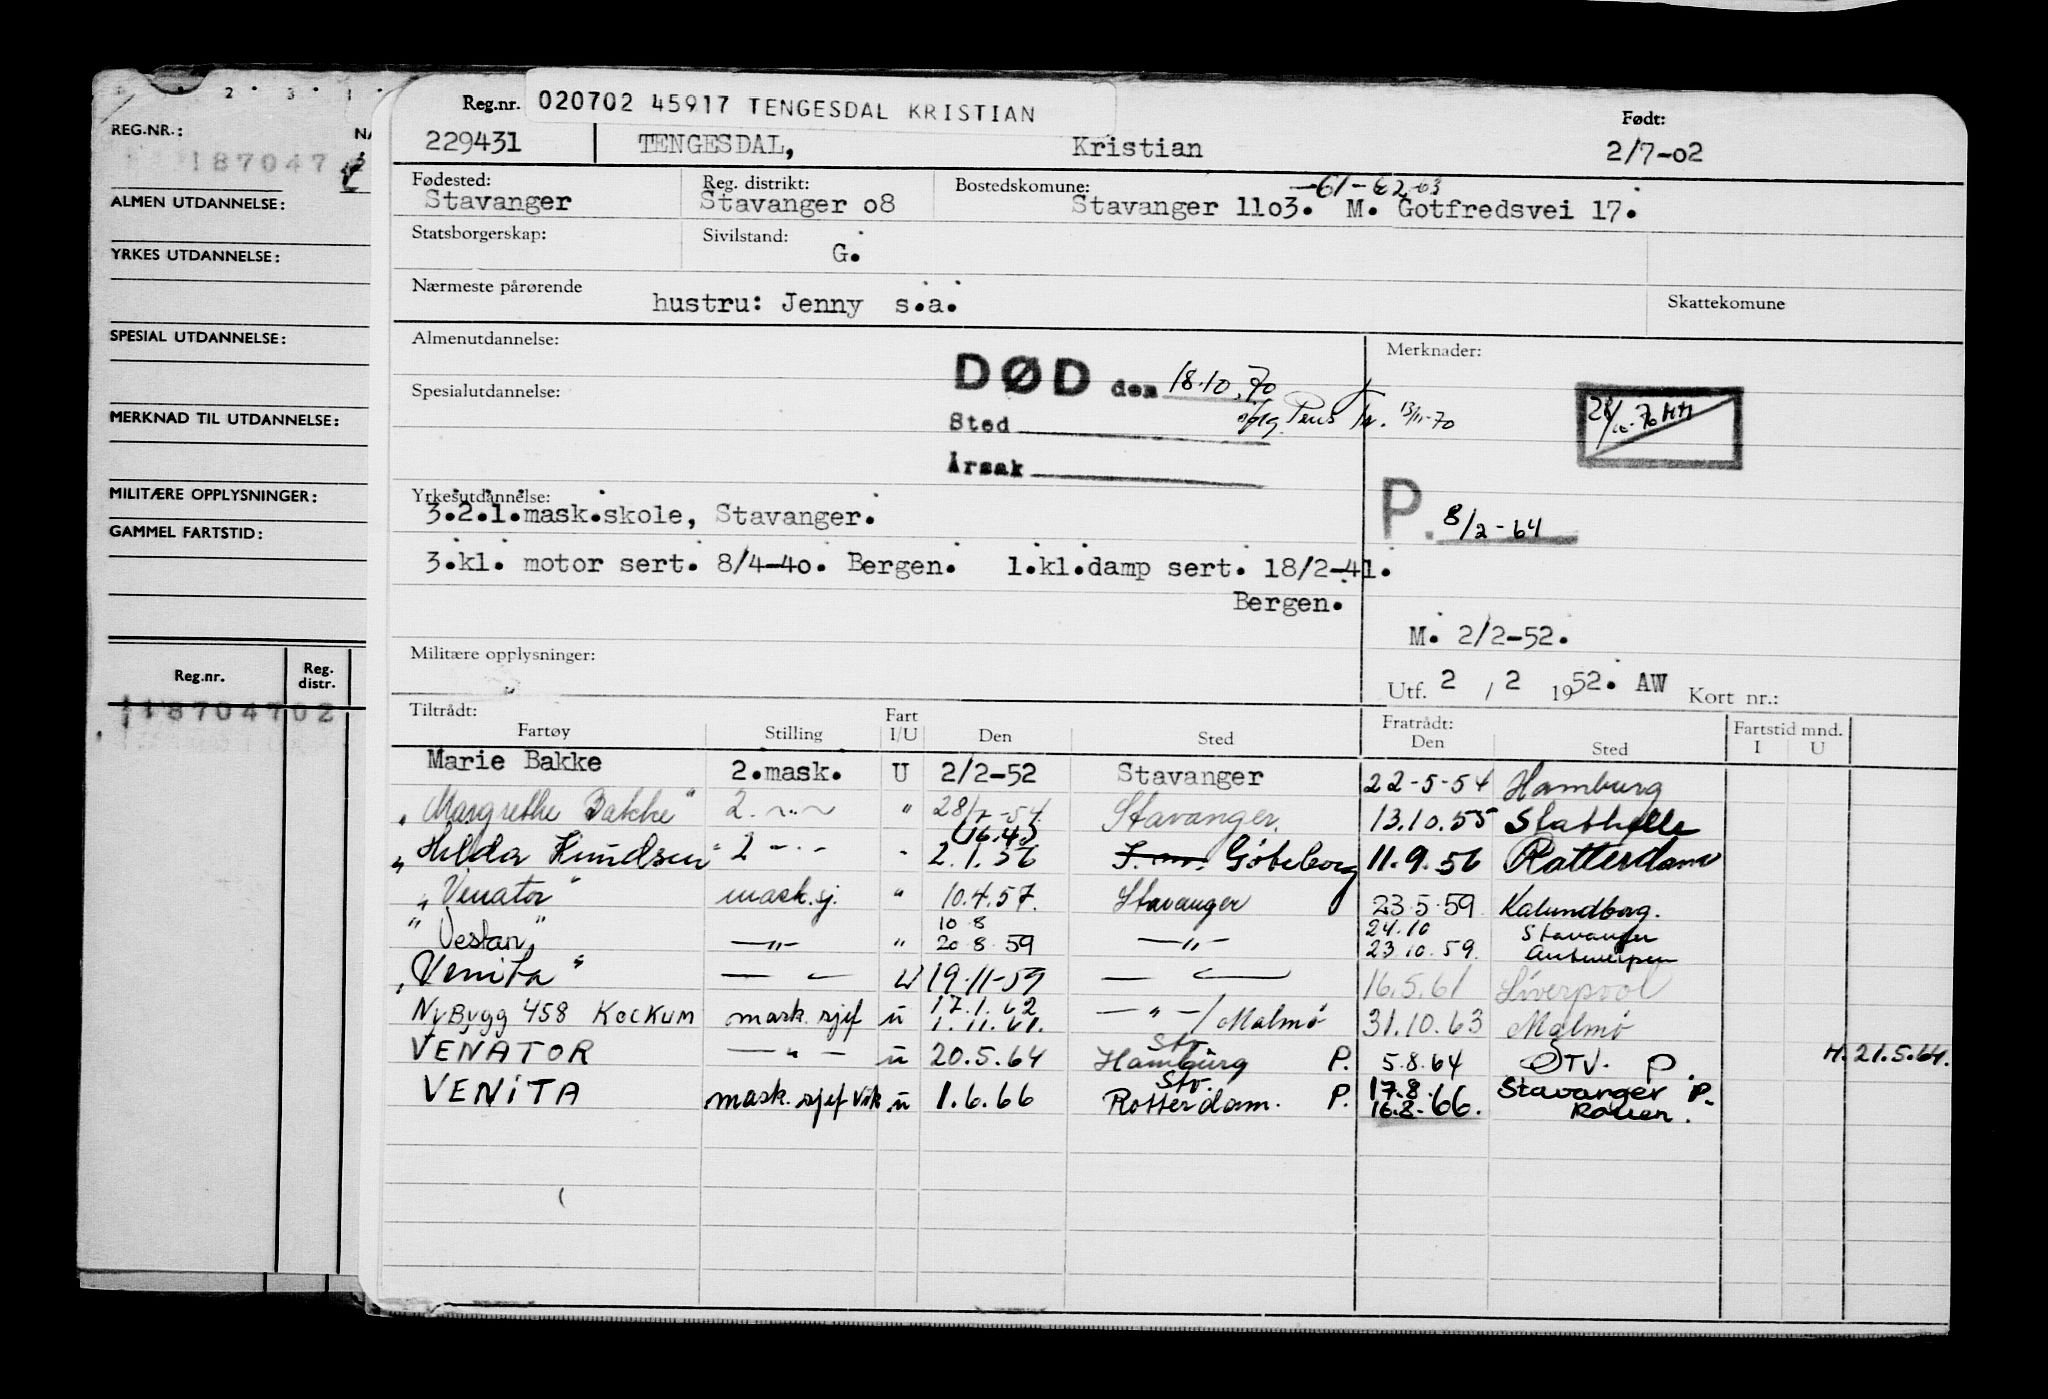 2 . 3 . 1 .
REG.NR.: NA
187047
ALMEN UTDANNELSE:
YRKES UTDANNELSE:
SPESIAL UTDANNELSE:
MERKNAD TIL UTDANNELSE:
MILITÆRE OPPLYSNINGER:
GAMMEL FARTSTID:
Reg.nr. Reg. distr.
118704702
Reg.nr. 020702 45917 TENGESDAL KRISTIAN Født:
229431 TENGESDAL, Kristian 2/7-02
Fødested: Reg. distrikt: Bostedskomune: -61-62-63
Stavanger Stavanger o8 Stavanger 11o3. M. Gotfredsvei 17.
Statsborgerskap: Sivilstand:
G.
Nærmeste pårørende Skattekomune
hustru: Jenny s.a.
Almenutdannelse: Merknader:
DØD den 18.10.70
Spesialutdannelse:
Sted Pens Tr. 13/11-70
Årsak
Yrkesutdannelse:
3.2.1.mask.skole, Stavanger.
P. 8/2-64
3.kl. motor sert. 8/4-4o. Bergen. 1.kl.damp sert. 18/2-41.
Bergen.
M. 2/2-52.
Militære opplysninger:
Utf. 2 / 2 1952. AW Kort nr.:
Tiltrådt: Fart Fratrådt: Fartstid mnd.
Fartøy Stilling I/U Den Sted Den Sted I U
Marie Bakke 2.mask. U 2/2-52 Stavanger 22-5-54 Hamburg
"Margrethe Bakke" 2. -"- " 28/7-54 Stavanger. 13.10.55 Stathelle
(16.4)
"Hilda Knudsen" 2 -"- " 2.1.56 Göteborg 11.9.56 Rotterdam
"Venator" mask.sj. " 10.4.57. Stavanger 23.5.59 Kalundborg.
10 8 24.10 Stavanger
"Vestan" -"- " 20.8.59 -"- 23.10.59. Antwerpen
"Venita" -"- U 19.11-59 -"- 16.5.61 Liverpool
17.1.62
Nybygg 458 KOCKUM mask.sjef u 1.11.61. -"-/Malmö 31.10.63 Malmö
Stv.
VENATOR -"- u 20.5.64 Hamburg P. 5.8.64 STV. P. H. 21.5.64.
Stv. 17.8. Stavanger P.
VENITA mask.sjef vik u 1.6.66 Rotterdam. P. 16.8.66. Rouen.